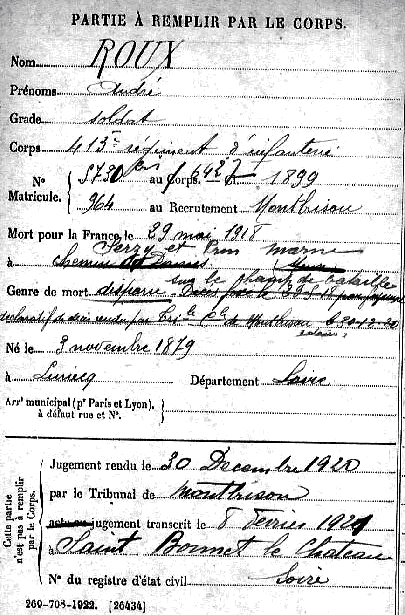 PARTIE À REMPLIR PAR LE CORPS.
Nom ROUX
Prénoms André
Grade soldat
Corps 413e régiment d'infanterie
N° Matricule.
5730 au Corps. Cl. 1899
964 au Recrutement Montbrison
Mort pour la France le 29 mai 1918
Serzy et Prin Marne
à Chemin des Dames
sur le champ de bataille
Genre de mort disparu
Né le 3 novembre 1879
à Luriecq Département Loire
Arrt municipal (pr Paris et Lyon), à défaut rue et N°.
Cette partie n'est pas à remplir par le Corps.
Jugement rendu le 30 Decembre 1920
par le Tribunal de Montbrison
acte ou jugement transcrit le 8 Fevrier 1921
à Saint Bonnet le Chateau
Loire
N° du registre d'état civil
260-708-1922. [26434]